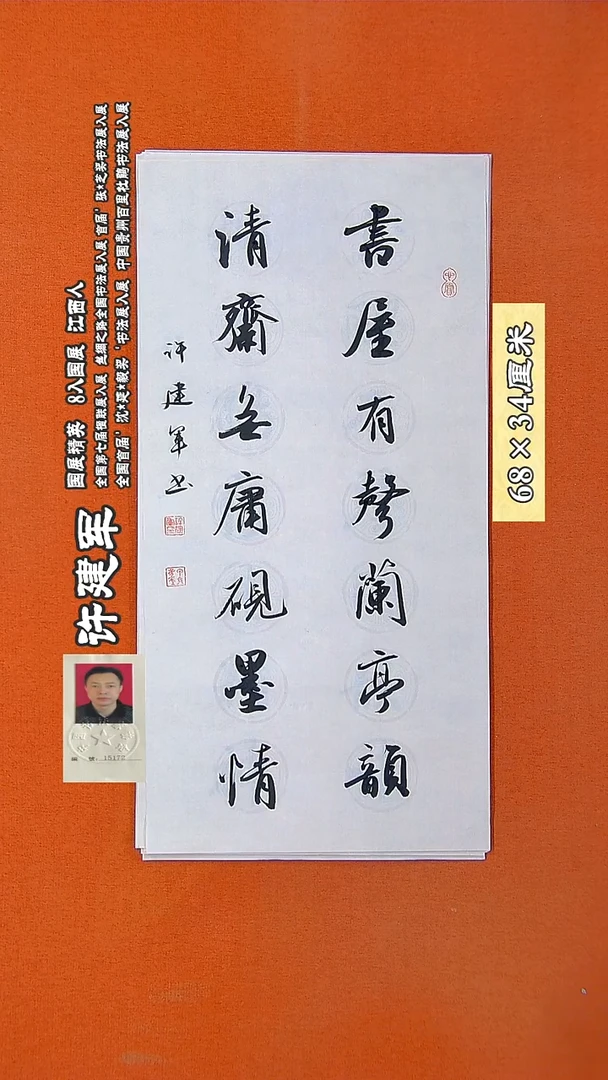 書屋有聲蘭亭韻
清齋無庸硯墨情
许建軍书
许建军
国展精英 8入国展 江西人
全国第七届楹联展入展 丝绸之路全国书法展入展 首届'张★芝奖书法展入展
全国首届'沈★延★毅奖'书法展入展 中国贵州百里杜鹃书法展入展
68×34厘米
编 号：15172